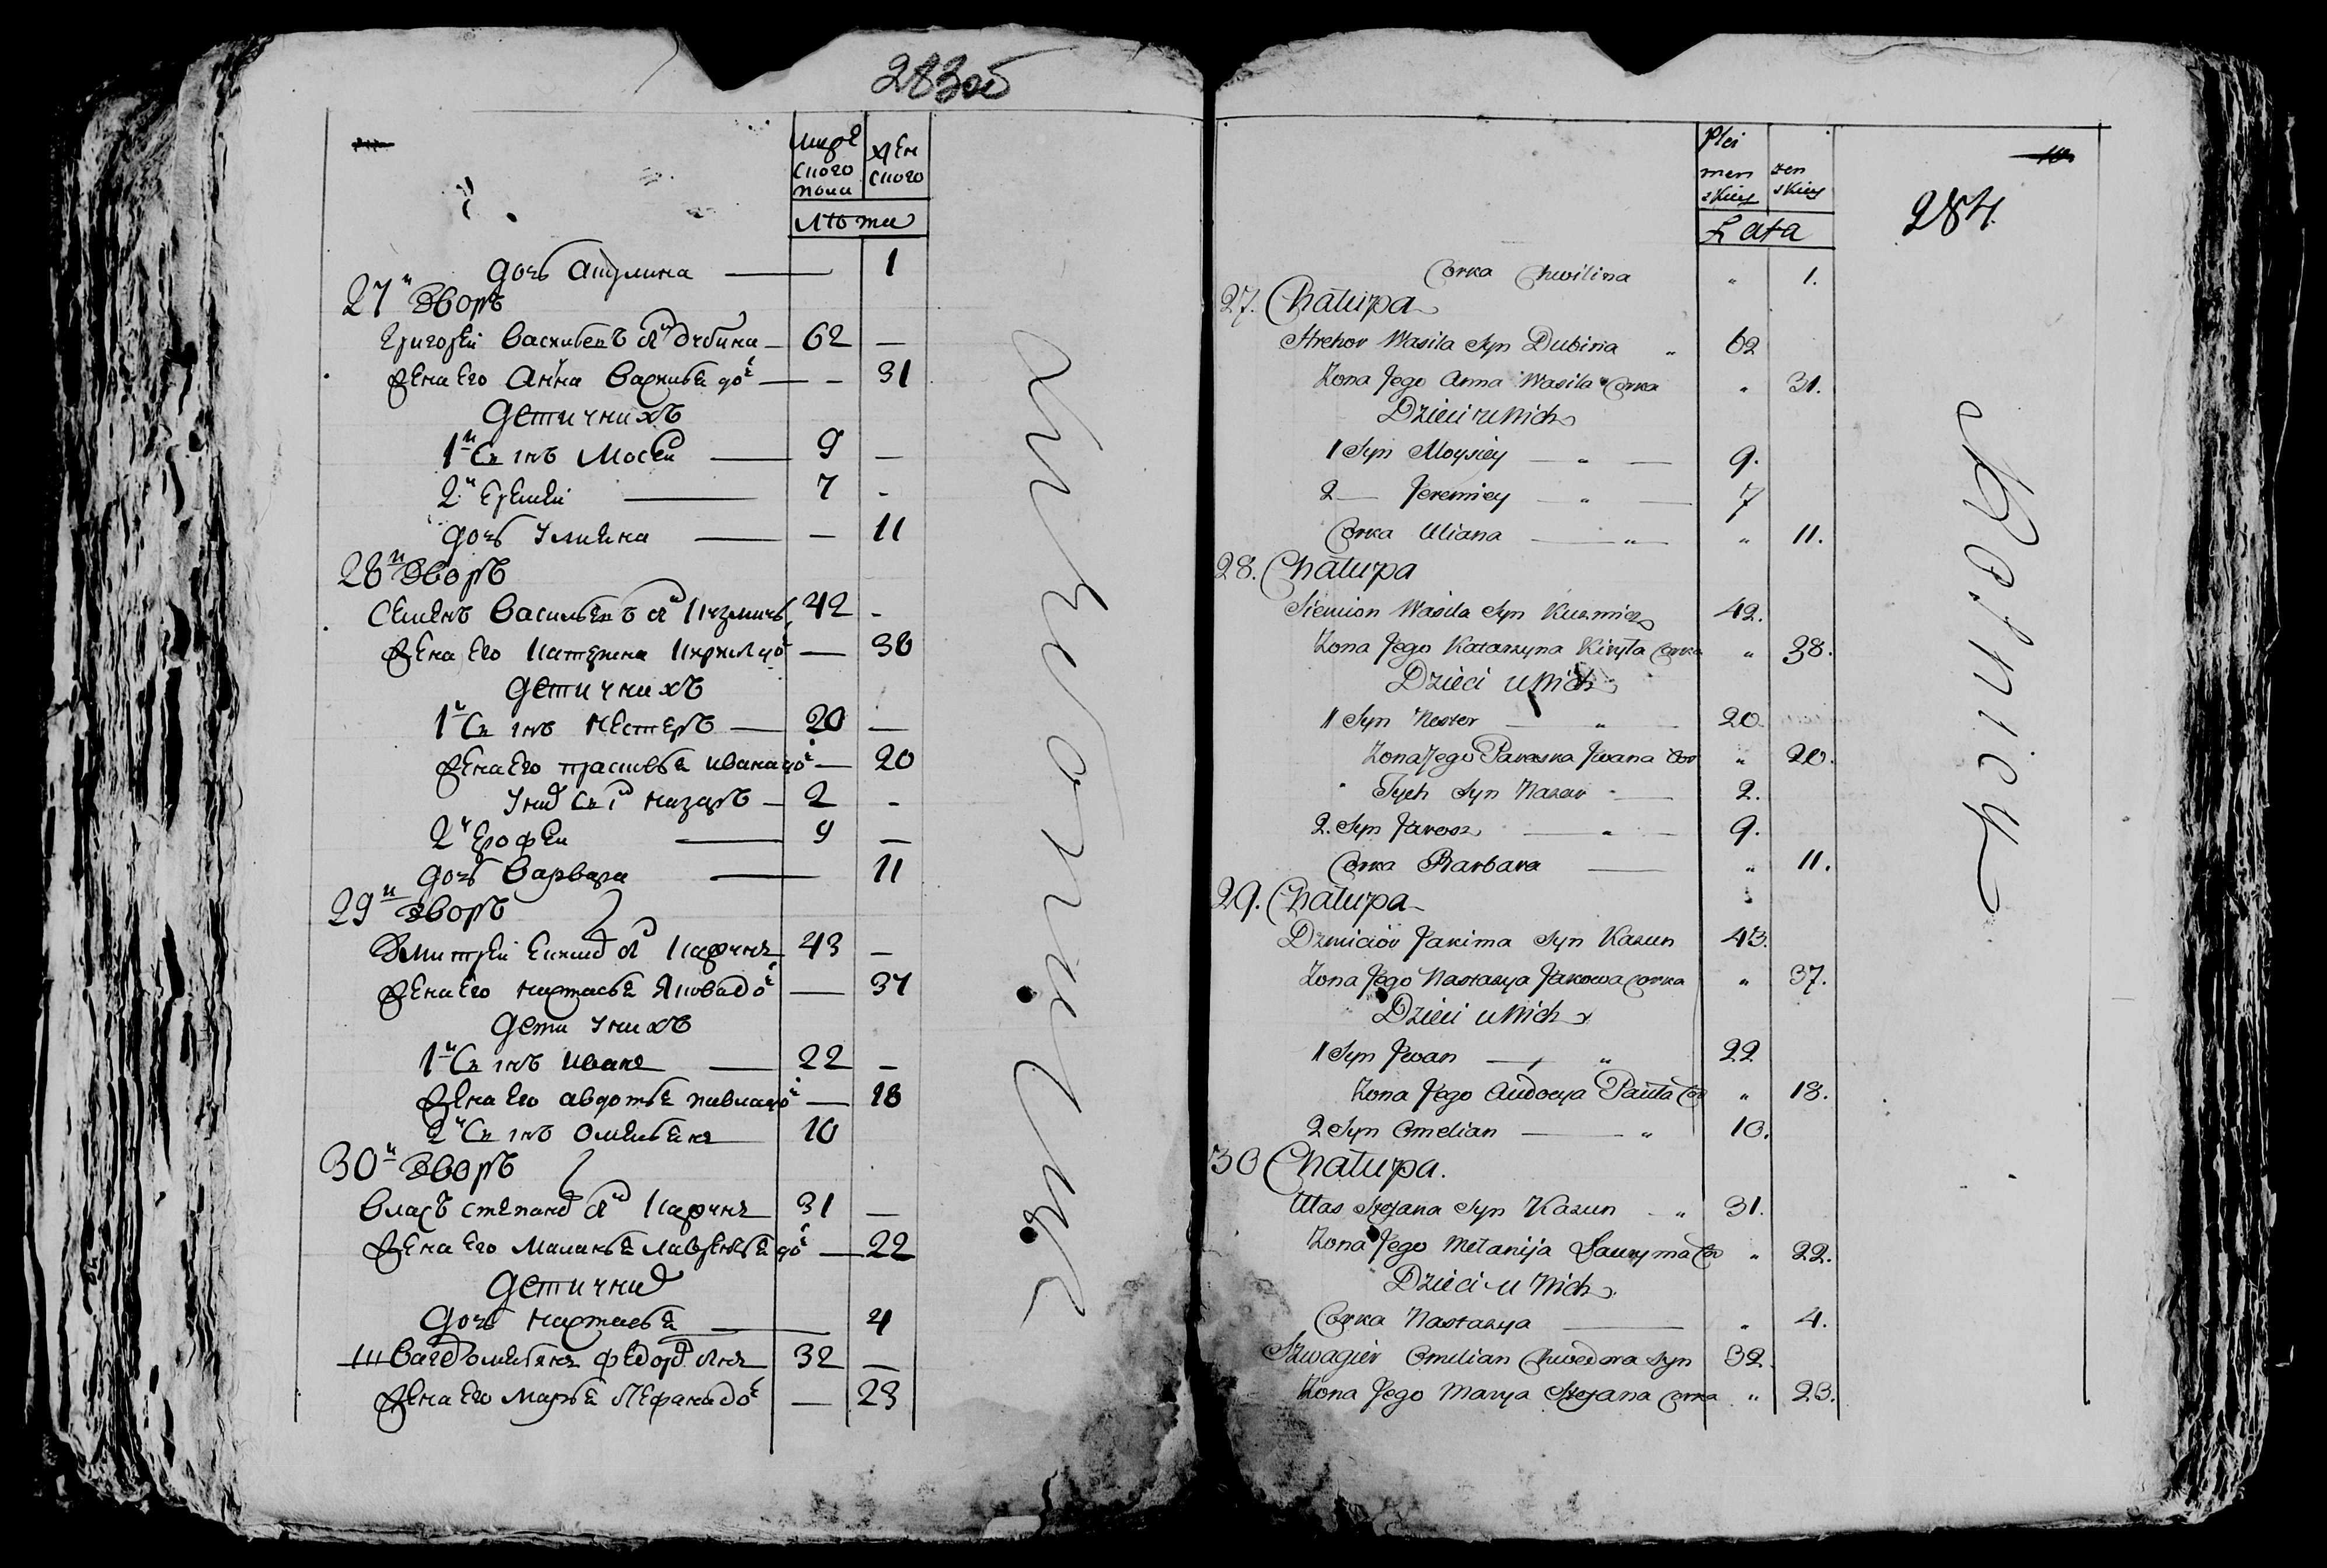 283об
муже ского пола
жен ского
лѣта
дочь Акулина — 1
27й Дворъ
Григорей Васильевъ сн Дубина — 62 —
Жена его Анна Василье до — — 31
Дети у нихъ
1й Снъ Мосей — 9 —
2й Еремей — 7 -
дочь Ульяна — — 11
28й Дворъ
Семенъ Васильевъ сн Кузмичь 42 -
Жена его Катерина Кирил до — 38
Дети у нихъ
1й Снъ Нестеръ — 20 —
Жена его Прасковья Ивана до — 20
У них сн Назаръ — 2 -
2й Ерофей — 9 —
дочь Варвара — 11
29й Дворъ
Дмитрей Еким сн Карунъ 43 —
Жена его Настасья Якова до — 37
Дети у нихъ
1й Снъ Иванъ — 22 -
Жена его Авдотья Павла до — 18
2й Снъ Омельянъ — 10
30й Дворъ
Власъ Степанов сн Карунъ 31 —
Жена его Маланья Лаврентья до — 22
Дети у них
дочь Настасья — 4
Омельянъ Федор снъ 32 —
Жена его Марья Стефана до — 23
Работникъ
Płci
męn skiey
żen skiey
Lata
10
284.
Corka Chwilina " 1.
27. Chałupa
Hrehor Wasila Syn Dubina " 62
Żona Jego Anna Wasila Corka " 31.
Dzieci u Nich
1 Syn Moysiey — " — 9.
2 — Jeremiey — " — 7
Corka Uliana — " — " 11.
28. Chałupa
Siemion Wasila Syn Kuzmicz 42.
Żona Jego Katarzyna Kiryła Corka " 38.
Dzieci u Nich
1 Syn Nester — " — 20.
Żona Jego Paraska Jwana Cor " 20.
Tych Syn Nazar — 2.
2. Syn Jarosz — " — 9.
Corka Barbara — " 11.
29. Chałupa
Dzmicior Jakima Syn Karun 43.
Żona Jego Nastazya Jakowa Corka " 37.
Dzieci u Nich
1 Syn Jwan — " 22
Żona Jego Audocya Pauła Cor " 18.
2 Syn Omelian — " 10.
30 Chałupa.
Ułas Stefana Syn Karun " 31.
Żona Jego Mełanija Ławryma Cor " 22.
Dzieci u Nich
Corka Nastazya — " 4.
Szwagier Omelian Chwedora Syn 32
Żona Jego Marya Stefana Corka " 23.